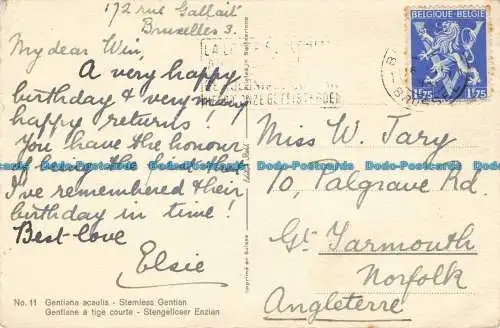 172 rue Gallait
Bruxelles 3.
My dear Win,
A very happy
birthday & very many
happy returns!
You have the honour
of being the first that
I've remembered their
birthday in time!
Best love
Elsie
No. 11 Gentiana acaulis - Stemless Gentian
Gentiane à tige courte - Stengelloser Enzian
Imprimé en Suisse
BELGIQUE-BELGIE
1F75 1F75
Miss W. Tary
10, Palgrave Rd.
Gt. Yarmouth
Norfolk
Angleterre
Dodo-Postcards Dodo-Postcards Dodo-Postcards Dodo-Postcards